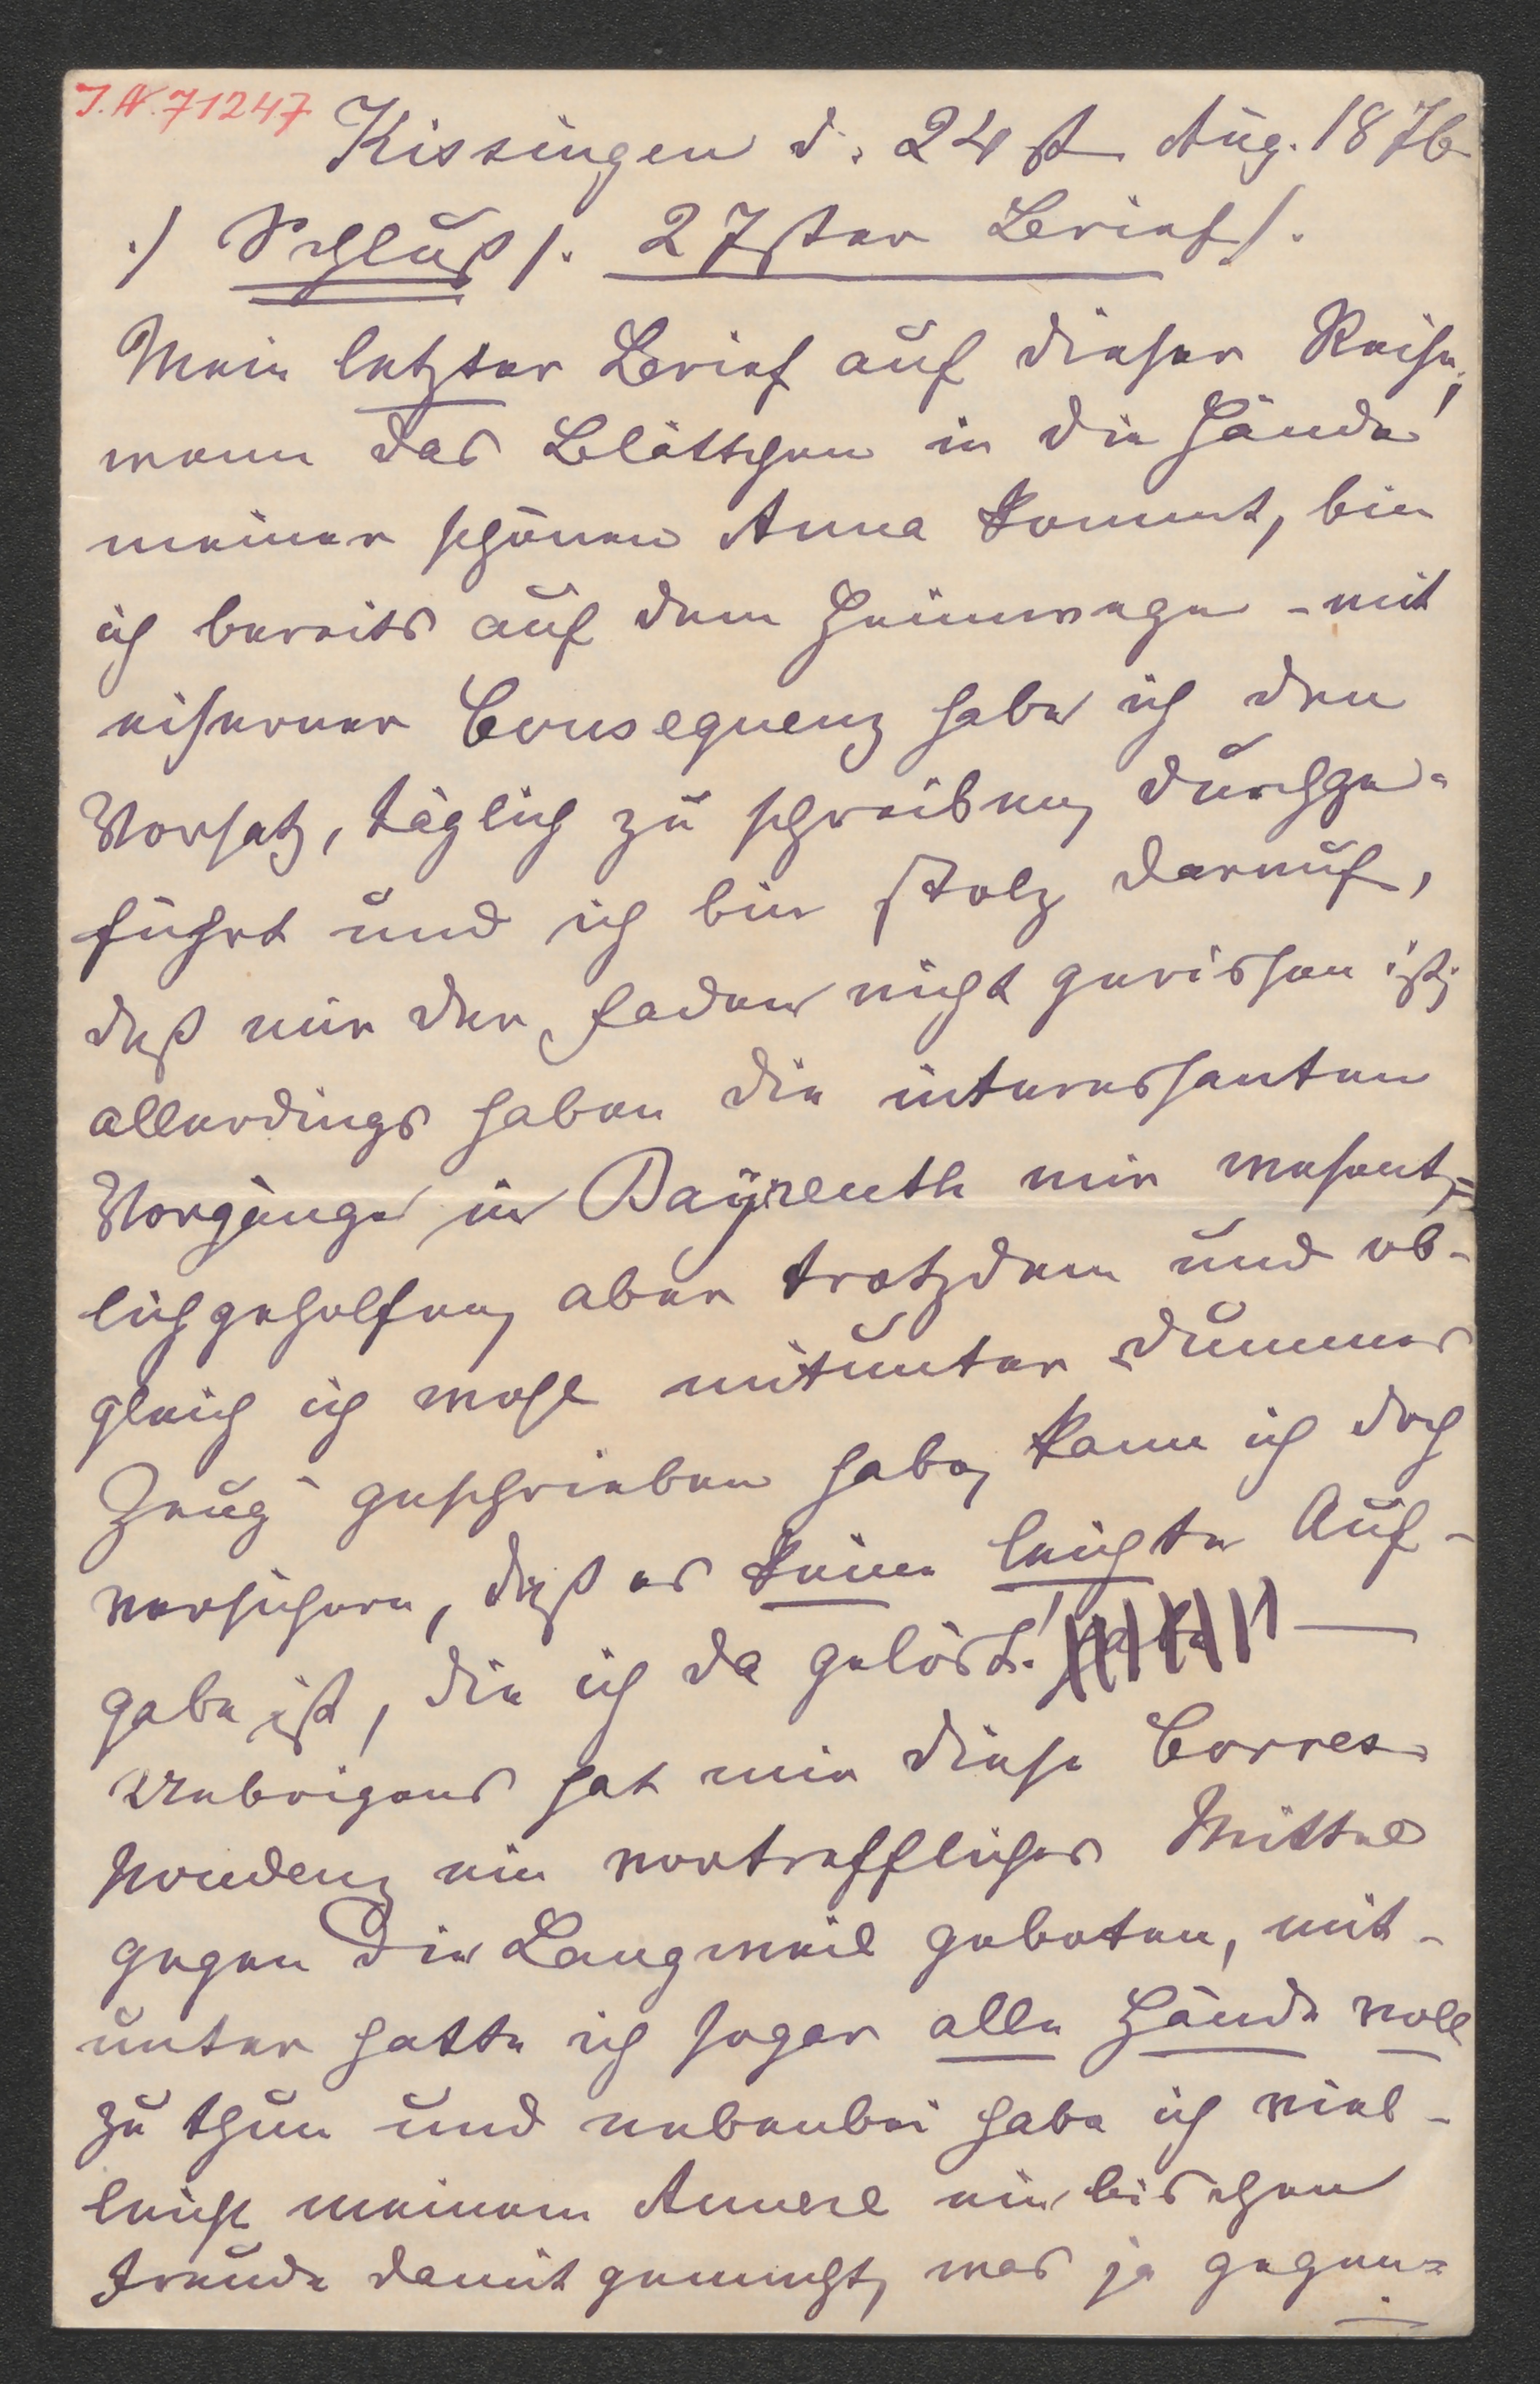 J.N. 71247
Kissingen d. 24st Aug. 1876
./ Schluß /. 27ster Brief/.
Mein letzter Brief auf dieser Reise;
wenn das Blättchen in die Hände
meiner schönen Anna kommt, bin
ich bereits auf dem Heimwege - mit
eiserner Consequenz habe ich den
Vorsatz, täglich zu schreiben, durchge-
führt und ich bin stolz darauf,
daß mir der Faden nicht gerissen ist;
allerdings haben die interessanten
Vorgänge in Bayreuth mir wesent=
lich geholfen, aber trotzdem und ob-
gleich ich wohl mitunter dummes
Zeug geschrieben habe, kann ich doch
versichern, daß es keine leichte Auf-
gabe ist, die ich da gelöst! —
Uebrigens hat mir diese Corres-
pondenz ein vortreffliches Mittel
gegen die Langweil geboten, mit-
unter hatte ich sogar alle Hände voll
zu thun und nebenbei habe ich viel-
leicht meinem Annerl ein bischen
Freude damit gemacht, was ja gegen=